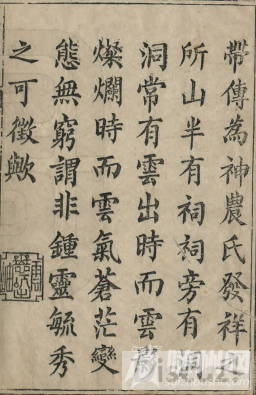 帶傳為神農氏發祥之
所山半有祠祠旁有洞
洞常有雲出時而雲影
燦爛時而雲氣蒼茫變
態無窮謂非鍾靈毓秀
之可徵歟